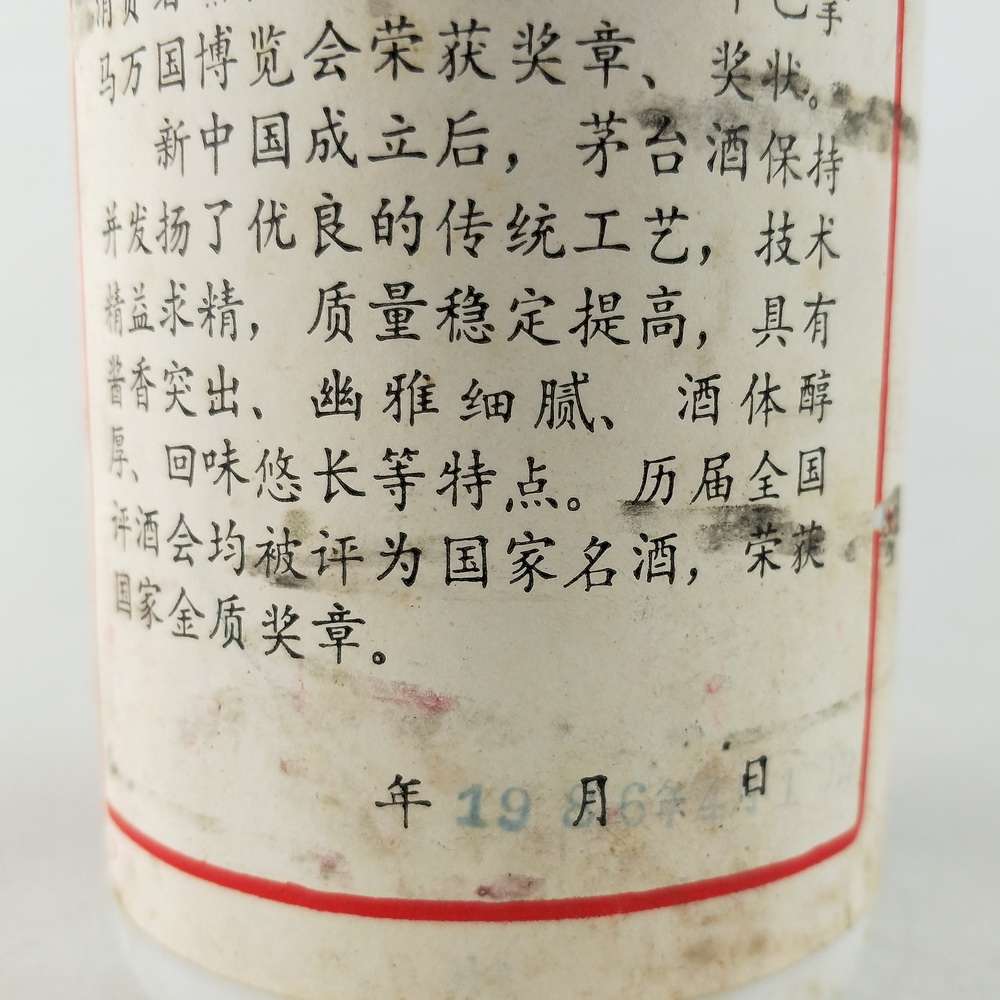 马万国博览会荣获奖章、奖状。
新中国成立后，茅台酒保持
并发扬了优良的传统工艺，技术
精益求精，质量稳定提高，具有
酱香突出、幽雅细腻、酒体醇
厚、回味悠长等特点。历届全国
评酒会均被评为国家名酒，荣获
国家金质奖章。
年 月 日
1986年4